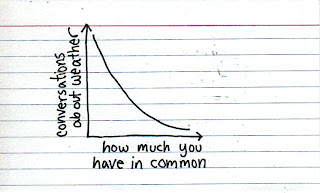 conversations
about weather
how much you
have in common